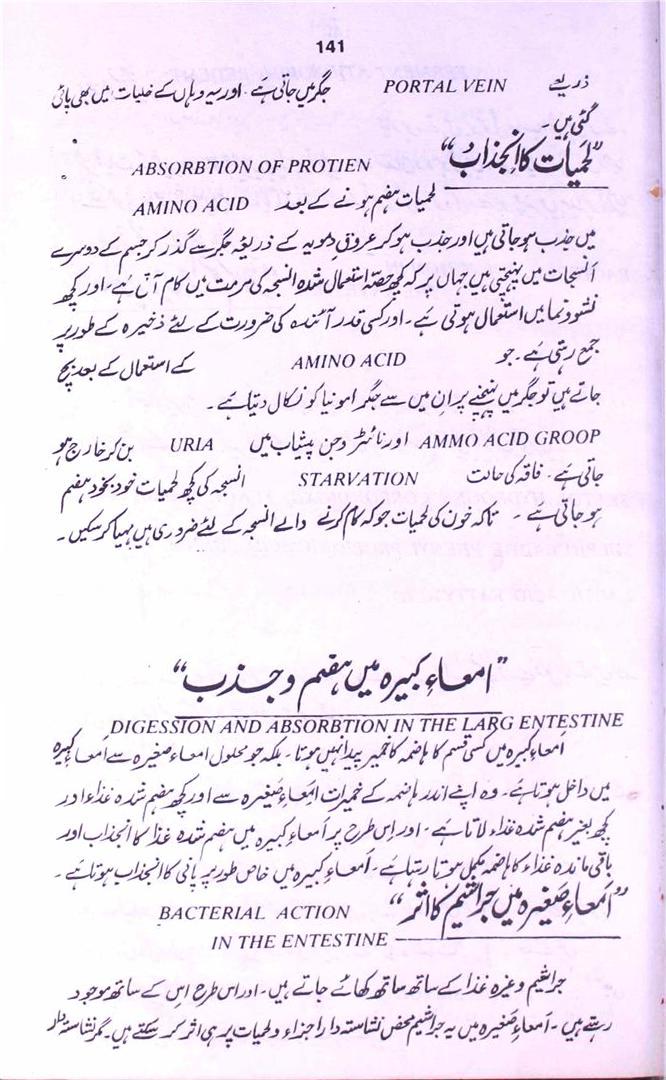 141
ذریعے PORTAL VEIN جگر میں جاتی ہے۔ اور یہ وہاں کے خلیات میں بھی پائی
گئی ہیں۔
"لحمیات کا اِنجذابُ"
ABSORBTION OF PROTIEN
لحمیات ہضم ہونے کے بعد AMINO ACID
میں جذب ہو جاتی ہیں اور جذب ہو کر عروقِ دمویہ کے ذریعہ جگر سے گذر کر جسم کے دوسرے
اَنسجات میں پہنچتی ہیں جہاں پر کہ کچھ حصّہ استعمال شدہ انسجہ کی مرمت میں کام آتی ہے۔ اور کچھ
نشوونما میں استعمال ہوتی ہے۔ اور کسی قدر آئندہ کی ضرورت کے لئے ذخیرہ کے طور پر
جمع رہتی ہے۔ جو AMINO ACID کے استعمال کے بعد بچ
جاتے ہیں تو جگر میں پہنچنے پر ان میں سے جگر امونیا کو نکال دیتا ہے۔
AMMO ACID GROOP اور نائٹروجن پیشاب میں URIA بن کر خارج ہو
جاتی ہے۔ فاقہ کی حالت STARVATION انسجہ کی کچھ لحمیات خود بخود ہضم
ہو جاتی ہے۔ تاکہ خون کی لحمیات جو کہ کام کرنے والے انسجہ کے لئے ضروری ہیں مہیا کر سکیں۔
"امعاءِ کبیرہ میں ہضم و جذب"
DIGESSION AND ABSORBTION IN THE LARG ENTESTINE
اَمعاءِ کبیرہ میں کسی قسم کا ہاضمہ کا خمیر پیدا نہیں ہوتا۔ بلکہ جو محلول امعاء صغیرہ سے اَمعاءِ کبیرہ
میں داخل ہوتا ہے۔ وہ اپنے اندر ہاضمہ کے خمیرات اَمعاءِ صَغیرہ سے اور کچھ ہضم شدہ غذاء اور
کچھ بغیر ہضم شدہ غذاء لاتا ہے۔ اور اِس طرح پر اَمعاءِ کبیرہ میں ہضم شدہ غذا کا انجذاب اور
باقی ماندہ غذاء کا ہاضمہ مکمل ہوتا رہتا ہے۔ اَمعاءِ کبیرہ میں خاص طور پر پانی کا انجذاب ہوتا ہے۔
"اَمعاءِ صَغیرہ میں جراثیم کا اثر"
BACTERIAL ACTION
IN THE ENTESTINE
جراثیم وغیرہ غذا کے ساتھ ساتھ کھائے جاتے ہیں۔ اور اس طرح اِس کے ساتھ موجود
رہتے ہیں۔ اَمعاءِ صَغیرہ میں یہ جراثیم محض نشاستہ دار اجزاء و لحمیات پر ہی اثر کر سکتے ہیں۔ مگر نشاستہ دار